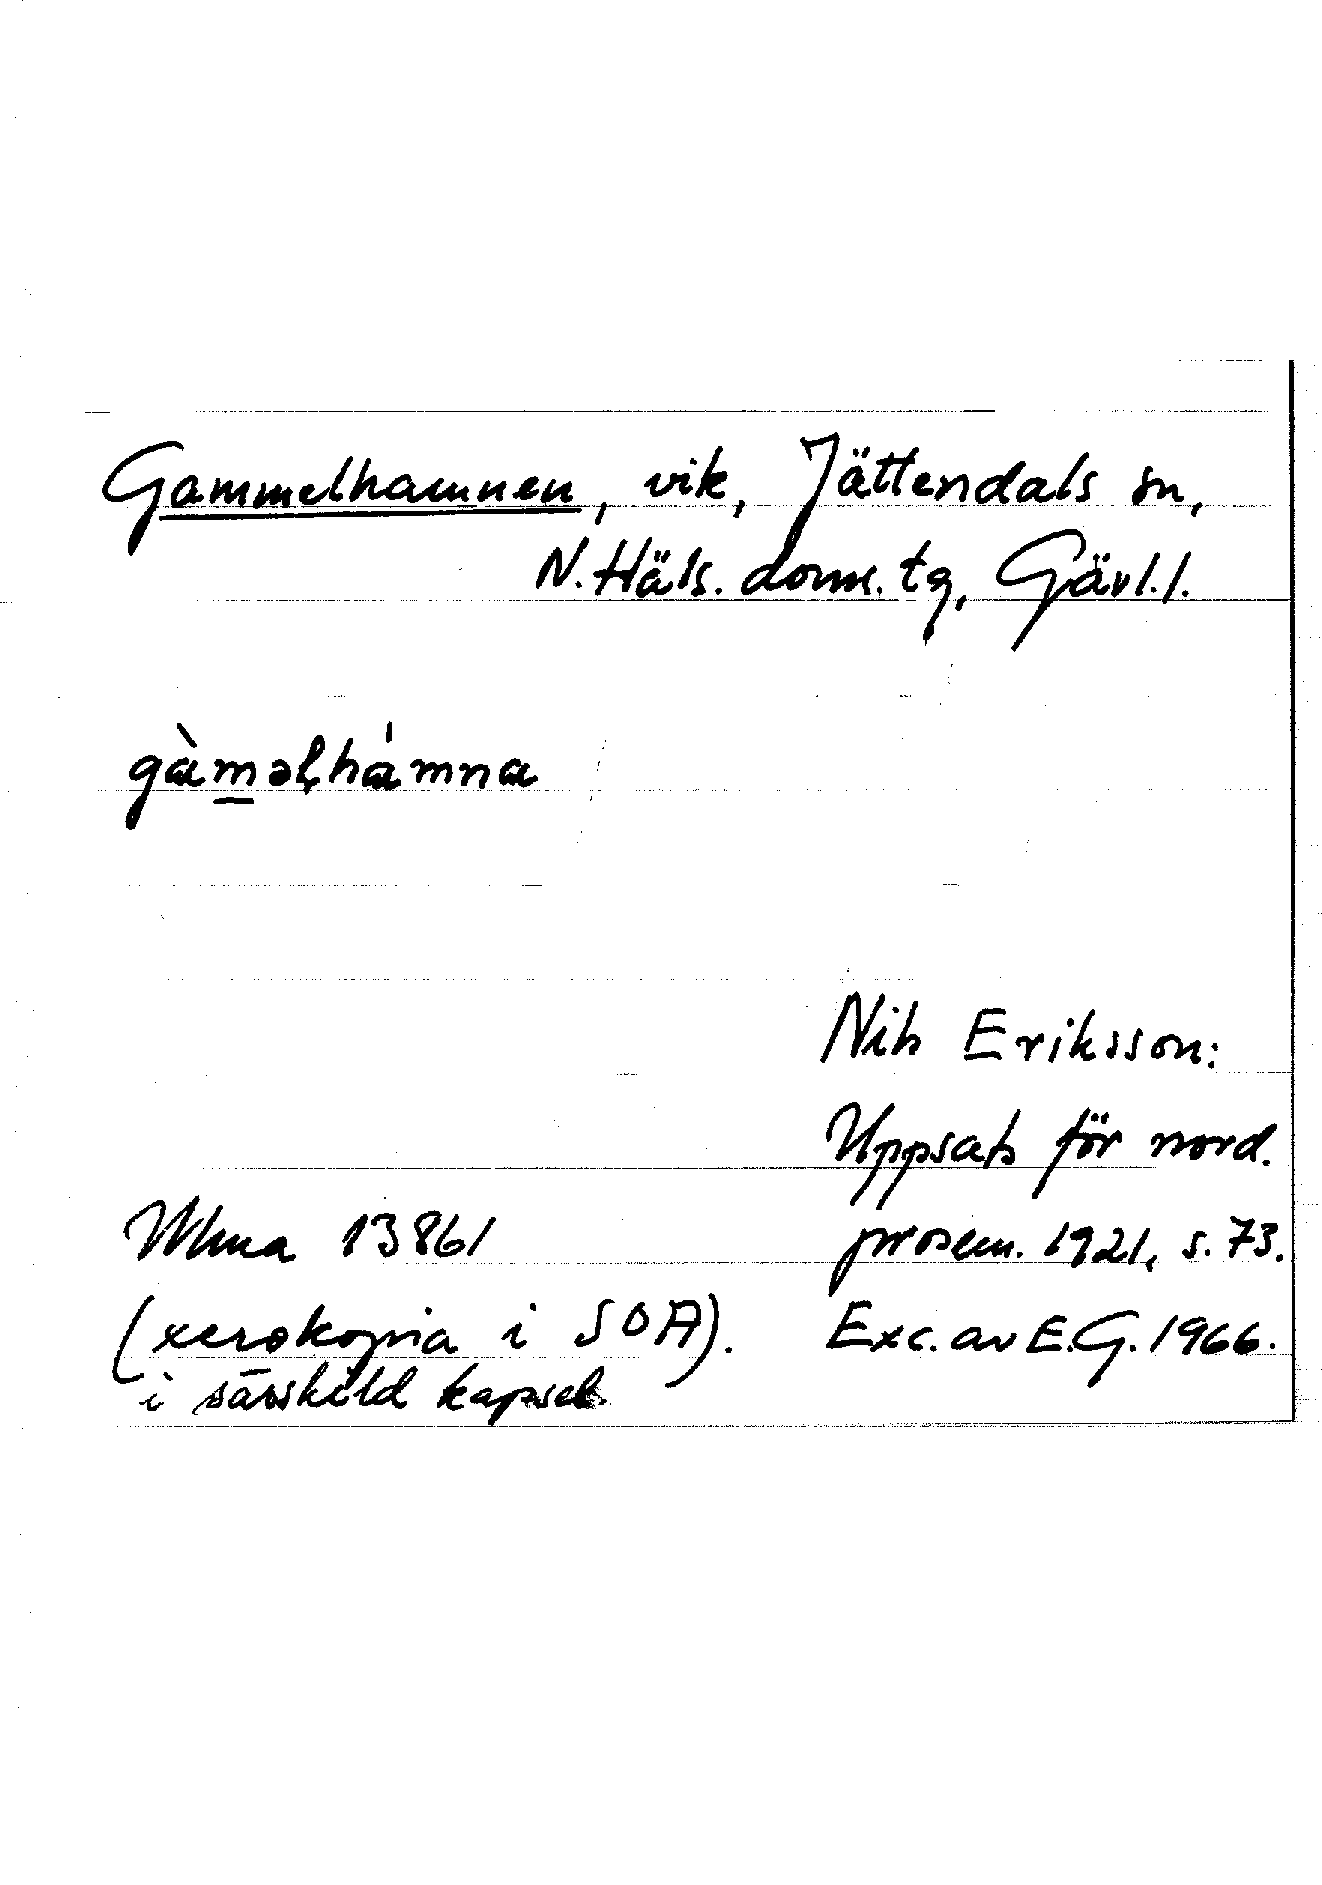 Gammelhamnen, vik, Jättendals sn,
N. Häls. doms. tg, Gävl. l.
gàm̲əl̨hámna
Nils Eriksson:
Uppsats för nord.
prosem. 1921, s. 73.
Ulma 13861
(xerokopia i SOA).
i särskild kapsel.
Exc. av E.G. 1966.